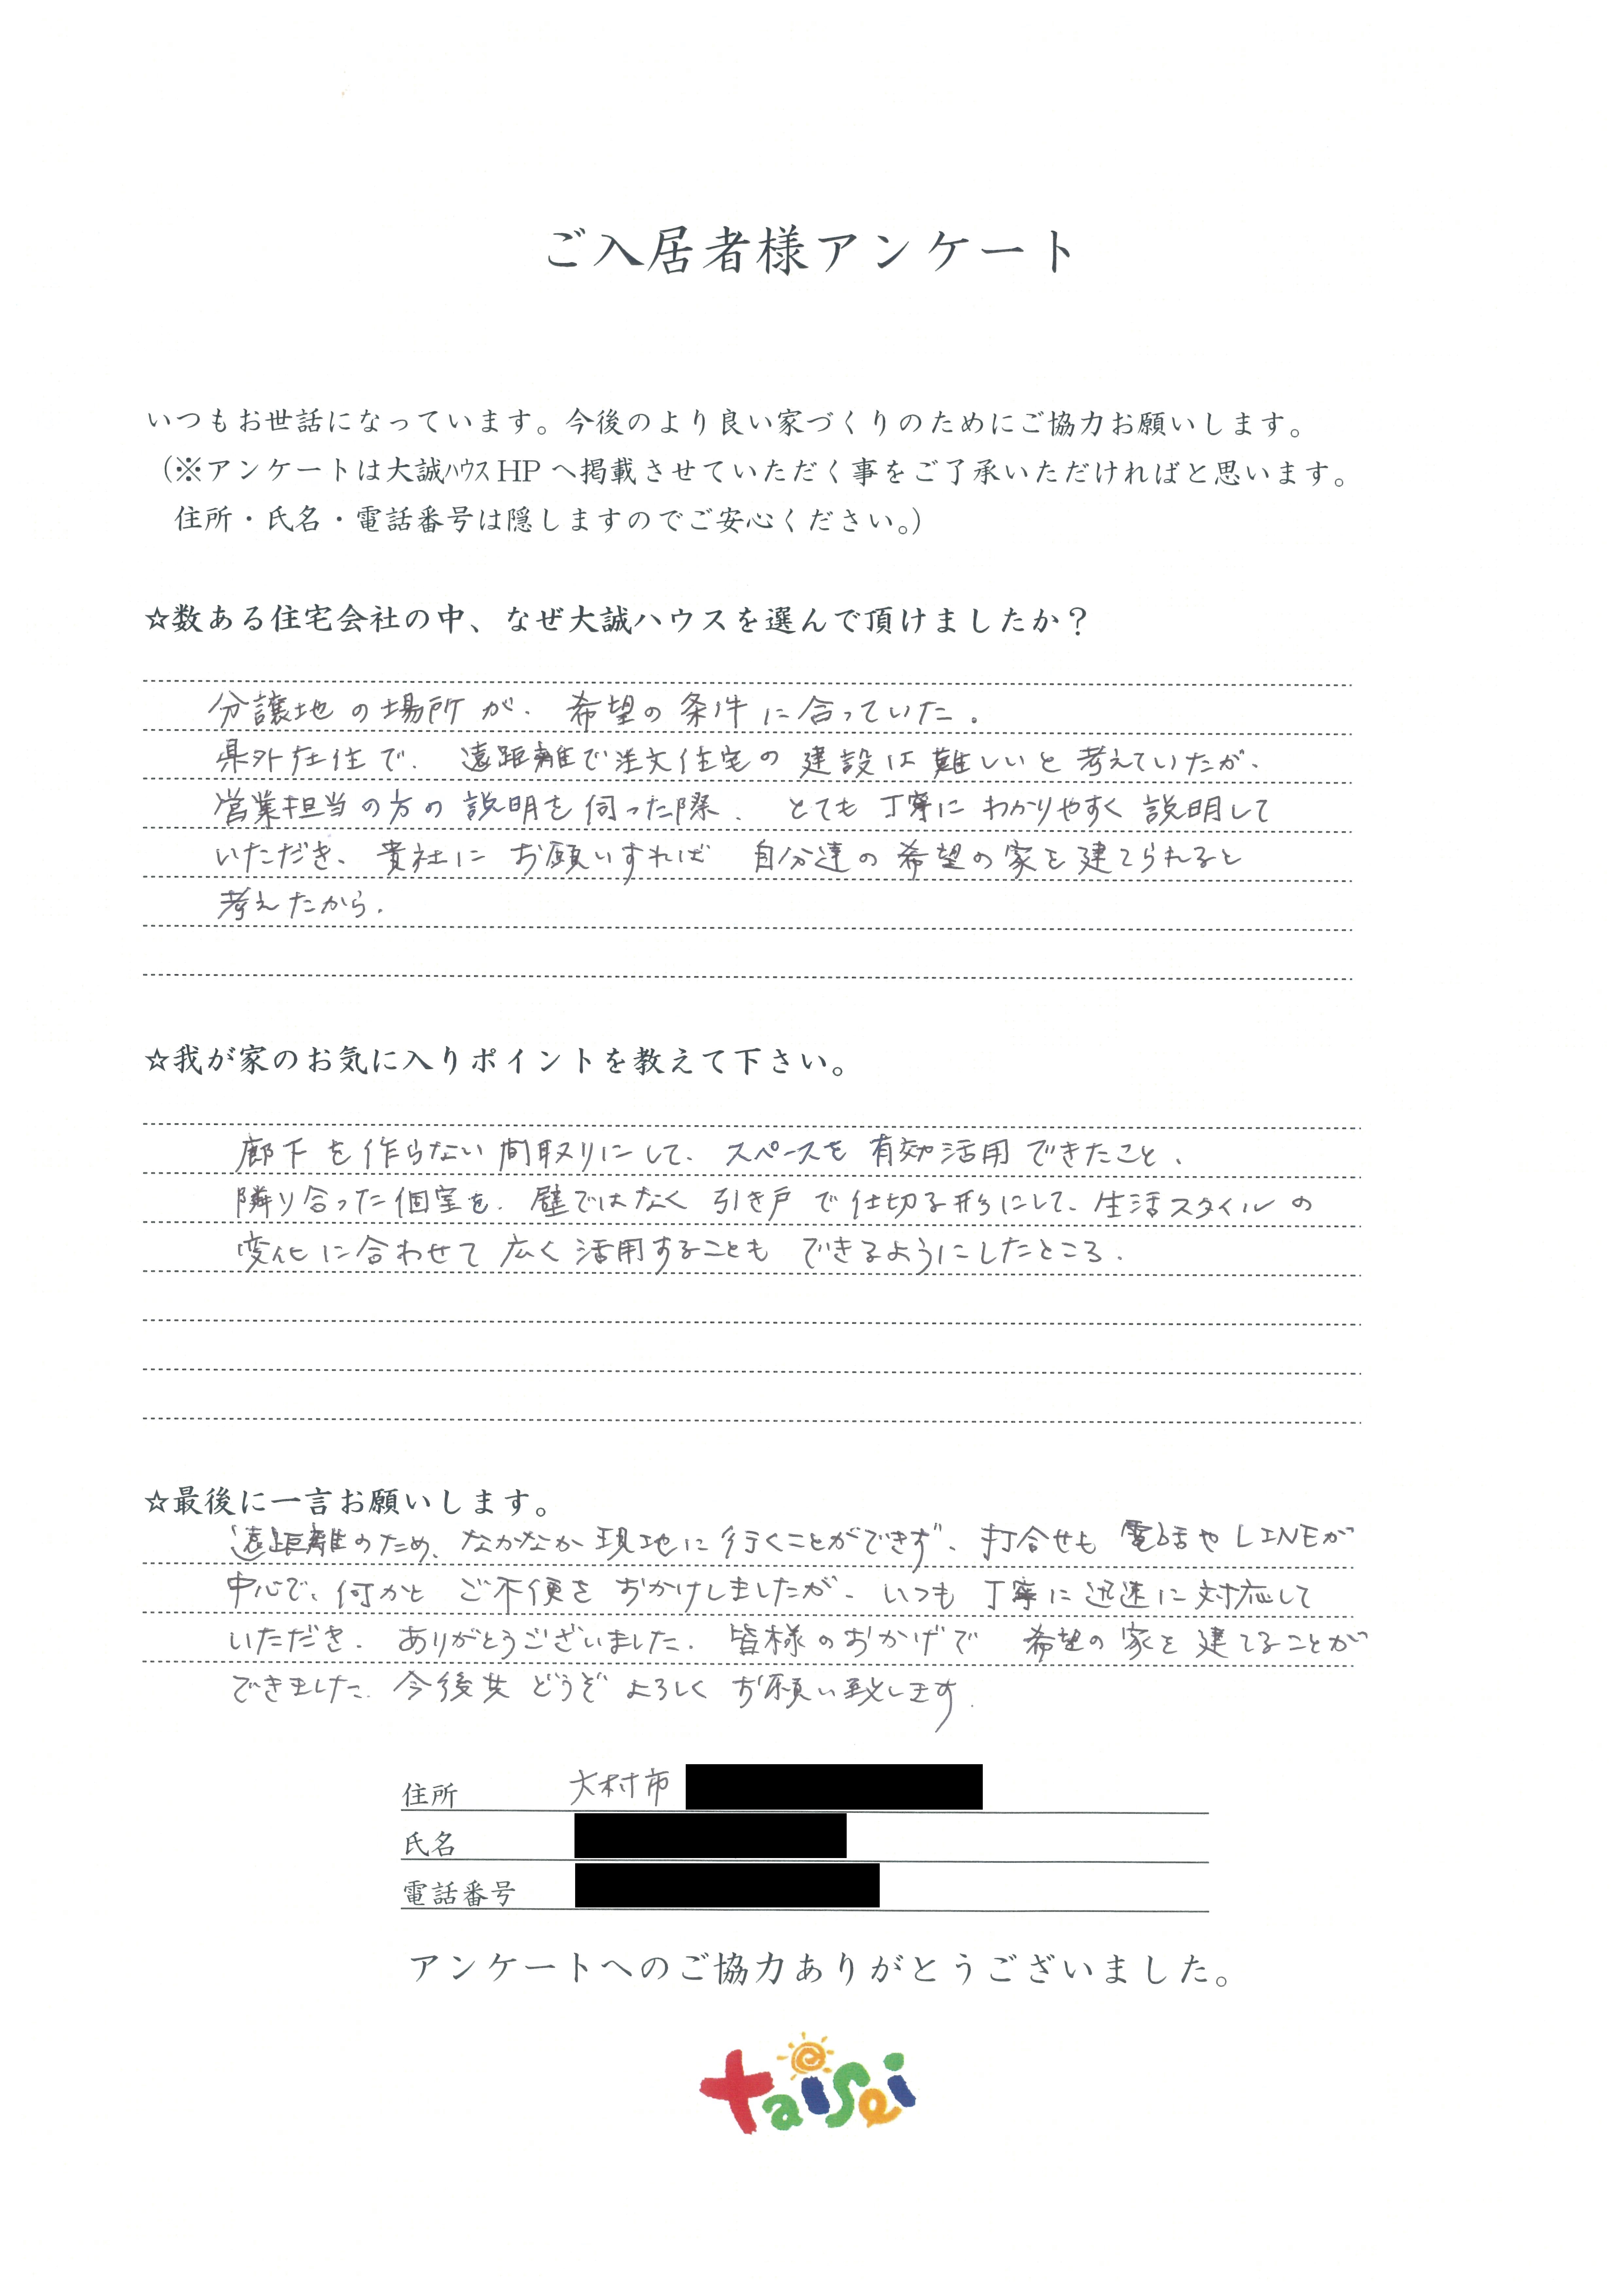 ご入居者様アンケート
いつもお世話になっています。今後のより良い家づくりのためにご協力お願いします。
(※アンケートは大誠ハウスHPへ掲載させていただく事をご了承いただければと思います。
住所・氏名・電話番号は隠しますのでご安心ください。)
☆数ある住宅会社の中、なぜ大誠ハウスを選んで頂けましたか？
分譲地の場所が、希望の条件に合っていた。
県外在住で、遠距離で注文住宅の建設は難しいと考えていたが、
営業担当の方の説明を伺った際、とても丁寧にわかりやすく説明して
いただき、貴社にお願いすれば自分達の希望の家を建てられると
考えたから。
☆我が家のお気に入りポイントを教えて下さい。
廊下を作らない間取りにして、スペースを有効活用できたこと、
隣り合った個室を、壁ではなく引き戸で仕切る形にして、生活スタイルの
変化に合わせて広く活用することもできるようにしたところ。
☆最後に一言お願いします。
遠距離のため、なかなか現地に行くことができず、打合せも電話やLINEが
中心で、何かとご不便をおかけしましたが、いつも丁寧に迅速に対応して
いただき、ありがとうございました。皆様のおかげで希望の家を建てることが
できました。今後共どうぞよろしくお願い致します。
住所 大村市
氏名
電話番号
アンケートへのご協力ありがとうございました。
taisei